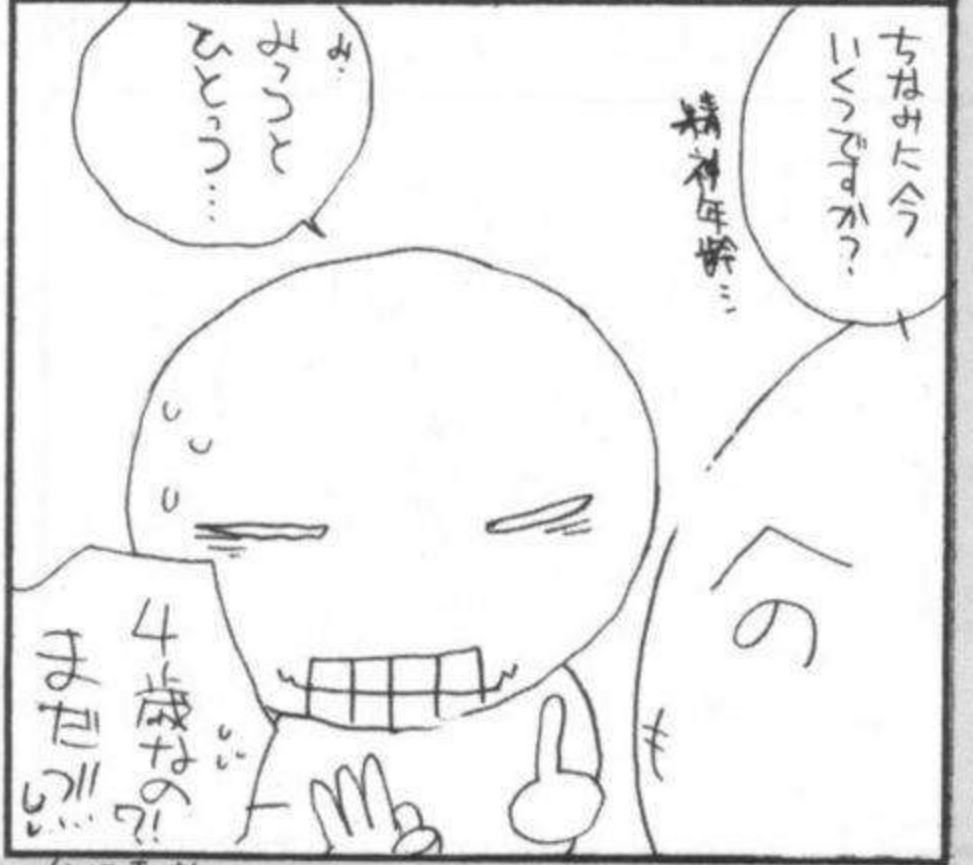 ちなみに今
いくつですか?
精神年齢…
み、
みっつと
ひとっつ…
4歳なの?!
まだ!!